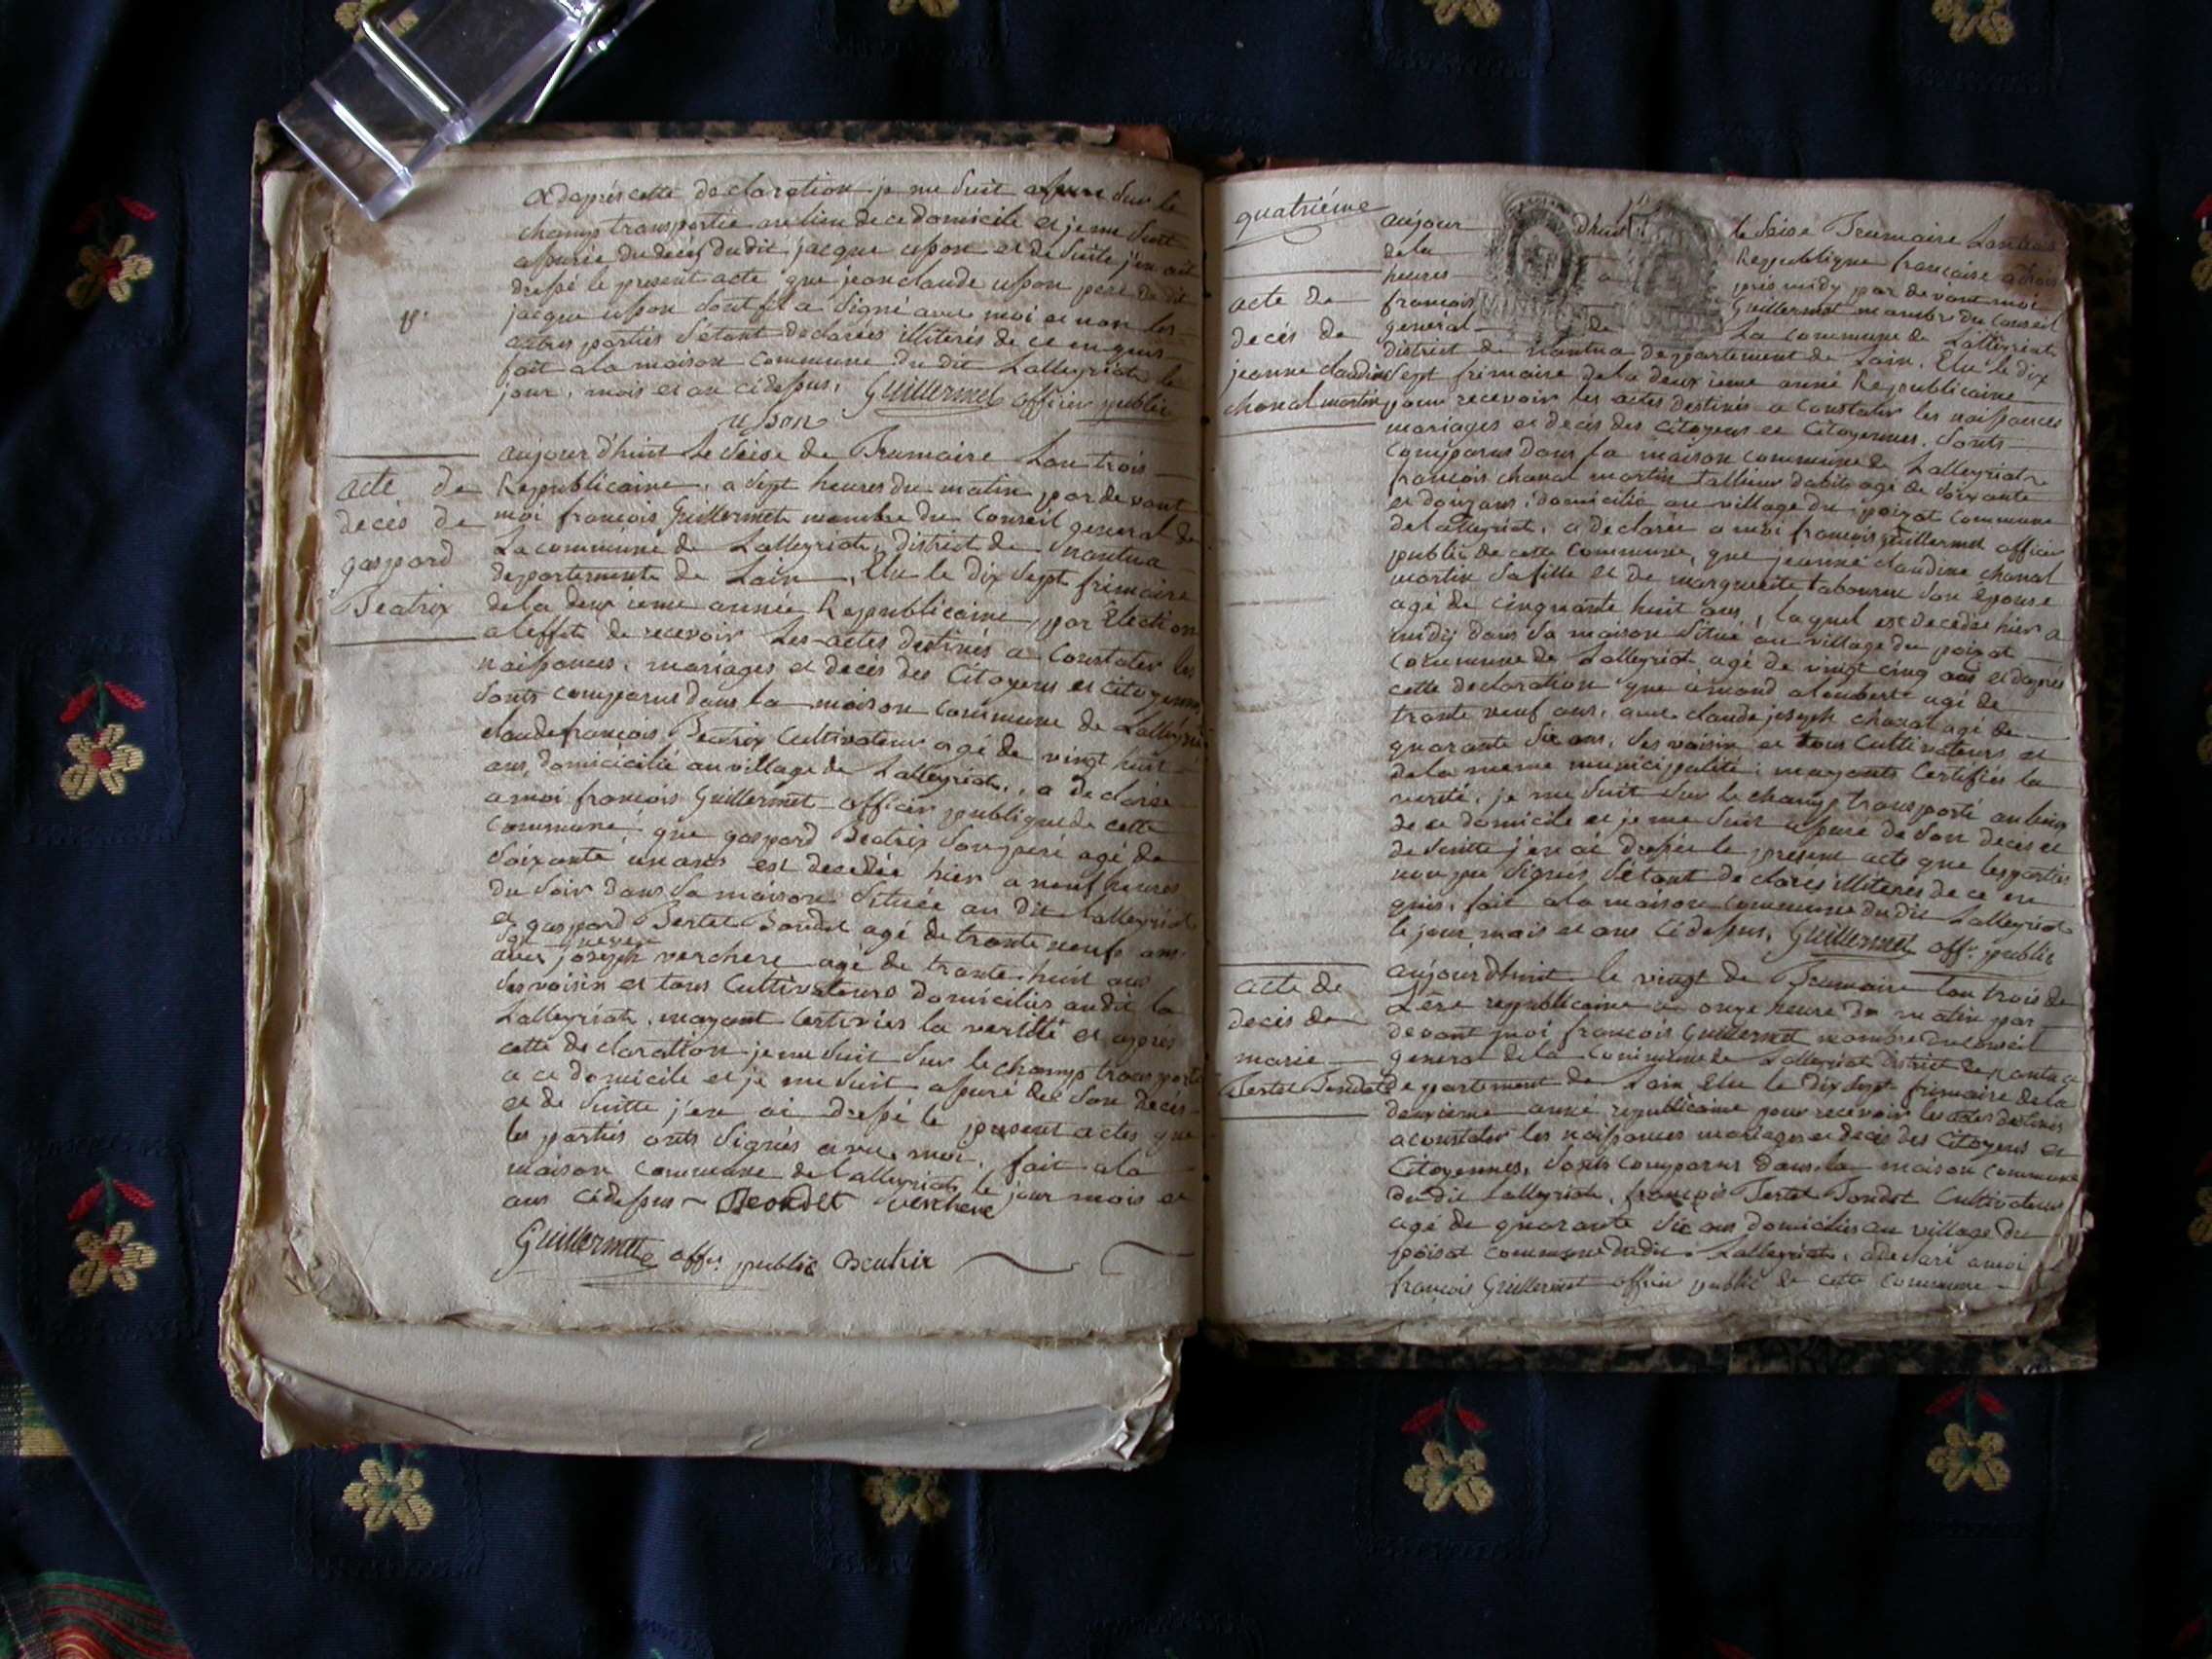 et d'aprés cette declaration je me suit assure sur le
champ transportée au lieu de ce domicile et je me suit
assurée du decés du dit jacque upson et de suite j'en ait
dressé le present acte que jean claude upson pere du dit
jacque upson dont il a signé avec moi et non les
autres parties s'étant declarées illiterés de ce enquis
fait a la maison commune du dit Lalleyriat le
jour, mois et an cidessus, Guillermet officier public
upson
acte de
decés de
gaspord
Beatrix
aujourd'huit Le seise de Brumaire Lan trois
Republicaine, a sept heures du matin par devant
moi francois Guillermet membre du Conseil general de
La commune de Lalleyriat, district de nantua
departement de Lain, Elu le dix sept frimaire
de la deuxieme année Republicaine, par Election
a leffet de recevoir Les actes destinés a Constater les
naissances, mariages et decés des Citoyens et Citoyennes
sonts comparus dans la maison commune de Lalleyriat
claude francois Beatrix Cultivateur agé de vingt huit
ans, domicicilié au village de Lalleyriat, a declaree
a moi francois Guillermet officier publique de cette
Commune, que gaspord Beatrix son pere agé de
soixante un ans est decedée hier a neuf heures
du soir dans sa maison située au dit Lalleyriat
et gaspord Bertet Bondet agé de trante neuf ans
son neveu
avec joseph verchere agé de trante huit ans
ses voisin et tous Cultivateurs domiciliés au dit la
Lalleyriat, mayant certiviés la veritté et aprés
cette declaration je me suit sur le champ transporté
a ce domicile et je me suit assuré de son decés
et de suitte j'en ai dressé le present actes que
les partiés onts signés avec moi, fait a la
maison commune de Lalleyriat le jour mois et
ans cidessus Beondet verchere
Guillermet offr. public Beatrix
quatriéme
acte de
decés de
jeanne claudine
chanal martin
aujour d'huit le seise Brumaire Lan trois
de la Republique francaise a trois
heures a prés midy par devant moi
francois Guillermet membre du Conseil
general de La commune de Lalleyriat
district de Nantua departement de Lain, Elu le dix
sept frimaire de la deuxieme année Republicaine
pour recevoir les actes destinés a constater les naissances
mariages et decés des Citoyens et Citoyennes, sonts
Comparus dans la maison commune de Lalleyriat
francois chanal martin tallieur dabits agé de soixante
et douze ans, domicilié au village du poizat commune
de Lalleyriat, a declarée a moi francois Guillermet officier
public de cette Commune, que jeanne claudine chanal
martin sa fille et de marguerite tabourin son épouse
agé de cinquante huit ans, laquel est decedée hier a
midy dans sa maison situé au village du poizat
commune de Lalleyriat agé de vingt cinq ans et daprés
cette declaration que émond aloubert agé de
trante neuf ans, avec claude joseph chanal agé de
quarante six ans, ses voisin et tous Cultivateurs et
de la meme municipalité; mayants certifiés la
verité, je me suit sur le champ transporté au lieu
de ce domicile et je me suit assuré de son decés et
de suitte j'en ai dressée le present acte que les parties
non pu signés s'étant declarés illiterés de ce en
quis, fait a la maison Commune du dit Lalleyriat
le jour, mois et ans cidessus, Guillermet offr. public
acte de
decés de
marie
Bertet Bondet
aujourdhuit le vingt de Brumaire lan trois de
L'ére republicaine a onze heure du matin par
devant moi francois Guillermet membre du Conseil
general de la Commune de Lalleyriat district de nantua
departement de Lain Elu le dix sept frimaire de la
deuxieme anné republicaine pour recevoir les actes destinés
a constater les naissances mariages et decés des Citoyens et
Citoyennes, sonts comparus dans la maison commune
du dit Lalleyriat, francois Bertet Bondet Cultivateur
agé de quarante six ans domiciliés au village du
poisat commune du dit Lalleyriat, a declaré a moi
francois Guillermet officier public de cette Commune